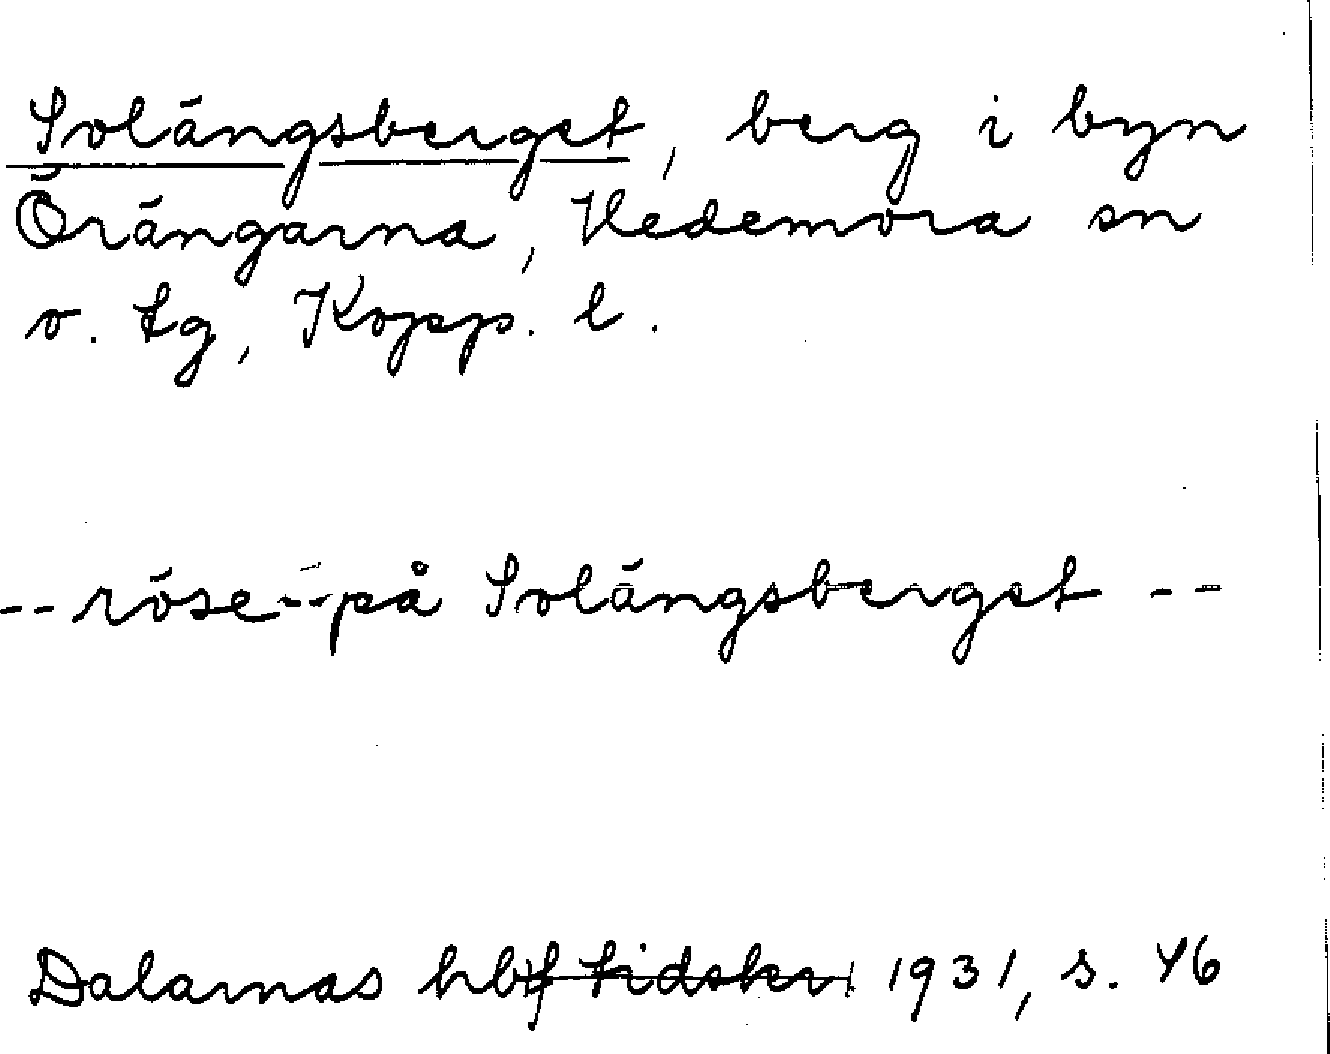 Solängsberget, berg i byn
Örängarna, Hedemora sn
o. tg, Kopp. l.
-- röse -- på Solängsberget --
Dalarnas hbf tidskr 1931, s. 46